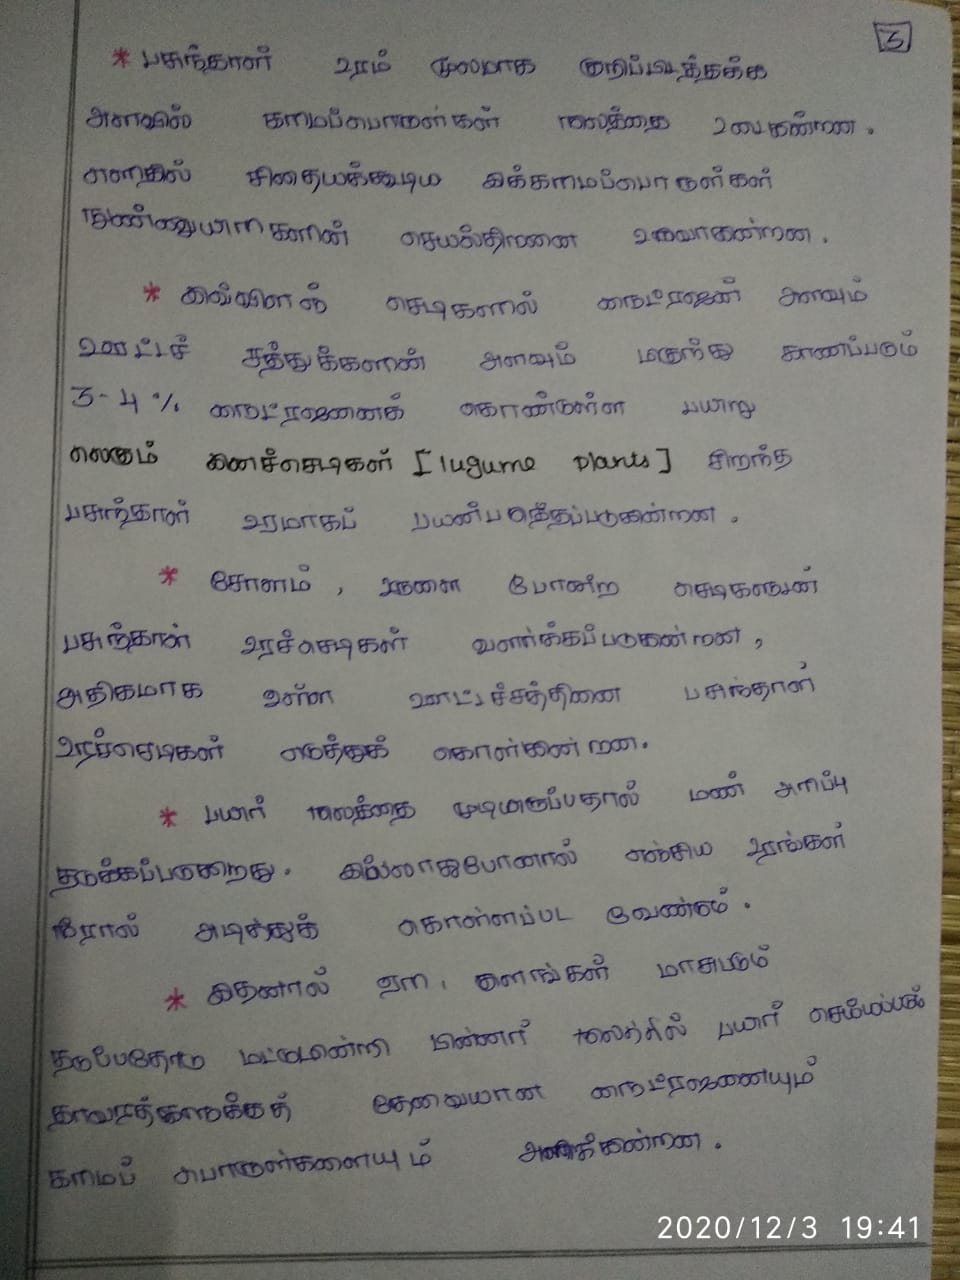 5
* பசுந்தாள் உரம் மூலமாக குறிப்பிடத்தக்க
அளவில் கரிமப்பொருள்கள் நிலத்தை உள்கின்றன.
எளிதில் சிதையக்கூடிய இக்கரிமப்பொருள்கள்
நுண்ணுயிரிகளின் செயல்திறனை உருவாகின்றன.
* இவ்வினச் செடிகளால் நைட்ரஜன் அளவும்
ஊட்டச் சத்துக்களின் அளவும் மிகுந்து காணப்படும்
3-4% நைட்ரஜனைக் கொண்டுள்ள பயிறு
லெகும் இனச்செடிகள் [lugume plants] சிறந்த
பசுந்தாள் உரமாகப் பயன்படுத்தப்படுகின்றன.
* சோளம், போன்ற செடிகளுடன்
பசுந்தாள் உரச்செடிகள் வளர்க்கப்படுகின்றன,
அதிகமாக உள்ள ஊட்டச்சத்தினை பசுந்தாள்
உரச்செடிகள் எடுத்துக் கொள்கின்றன.
* பயிர் நிலத்தை மூடியிருப்பதால் மண் அரிப்பு
தடுக்கப்படுகிறது. இல்லாதுபோனால் எஞ்சிய உரங்கள்
நீரால் அடித்துக் கொள்ளப்பட வேண்டும்.
* இதனால் ஏரி, குளங்கள் மாசுபடும்
தடுப்பதோடு மட்டுமின்றி பின்னர் நிலத்தில் பயிர் செய்யப்படும்
தாவரத்திற்குத் தேவையான நைட்ரஜனையும்
கரிமப் பொருள்களையும் அளிக்கின்றன.
2020/12/3 19:41